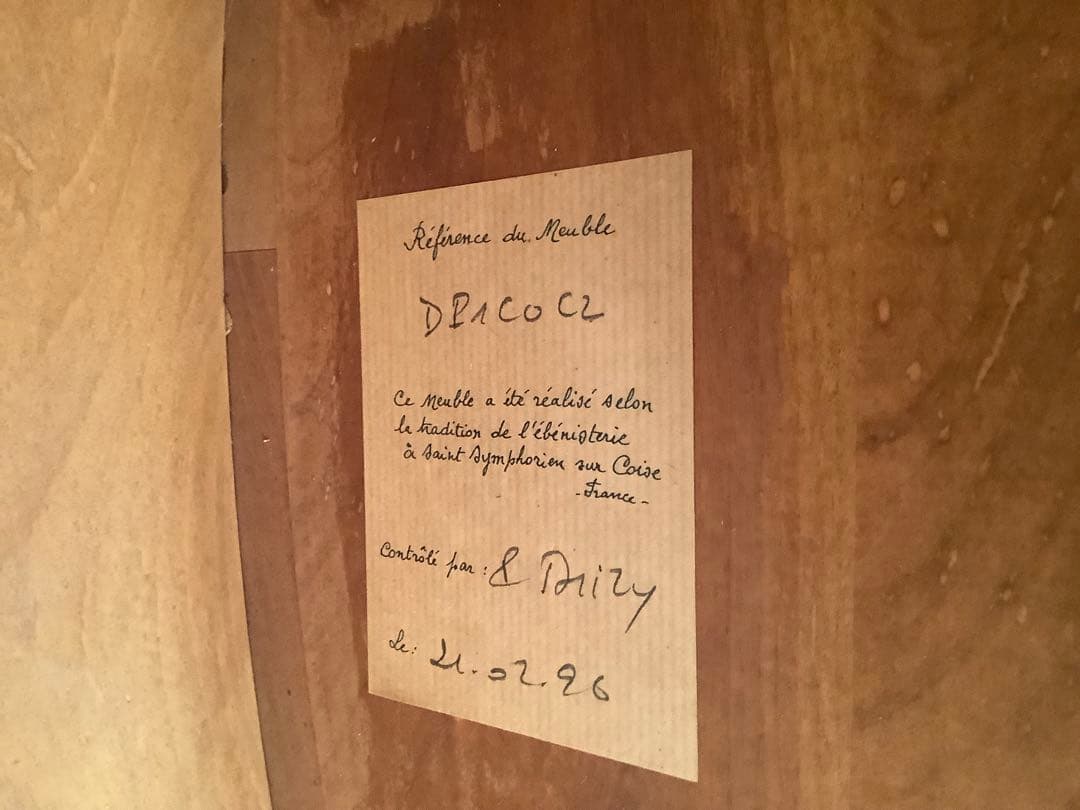 Référence du Meuble
DP1COC2
Ce Meuble a été réalisé selon
la tradition de l'ébénisterie
à Saint Symphorien sur Coise
-France-
Contrôlé par :
Le : 21.02.96